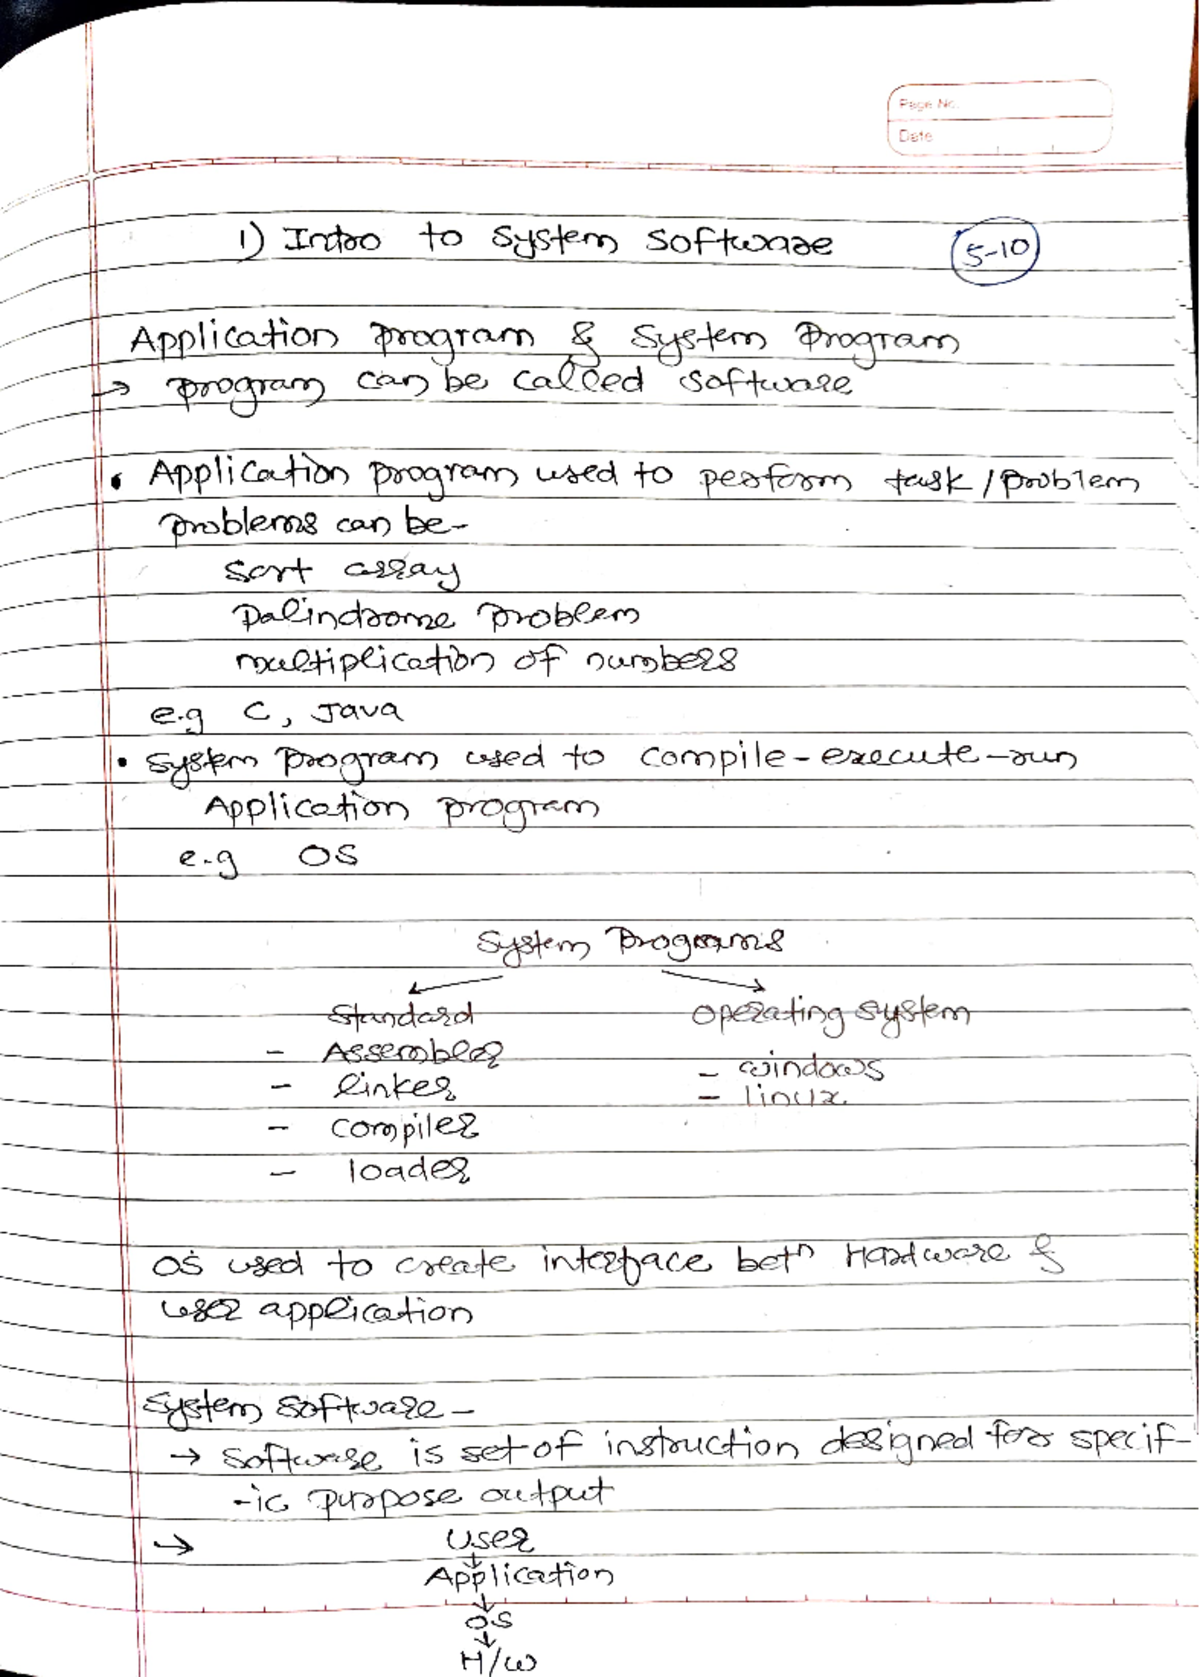 Page No.
Date
1) Intro to System Software
5-10
Application program & System Program
→ program can be called software
• Application program used to perform task/problem
problems can be-
sort array
Palindrome problem
multiplication of numbers
e.g C, Java
• System Program used to compile-execute-run
Application program
e.g OS
System Programs
Standard Operating system
- Assembler - windows
- linker - linux
- compiler
- loader
OS used to create interface betn Hardware &
user application
System Software -
→ Software is set of instruction designed for specif-
-ic purpose output
→ User
↓
Application
↓
OS
↓
H/w